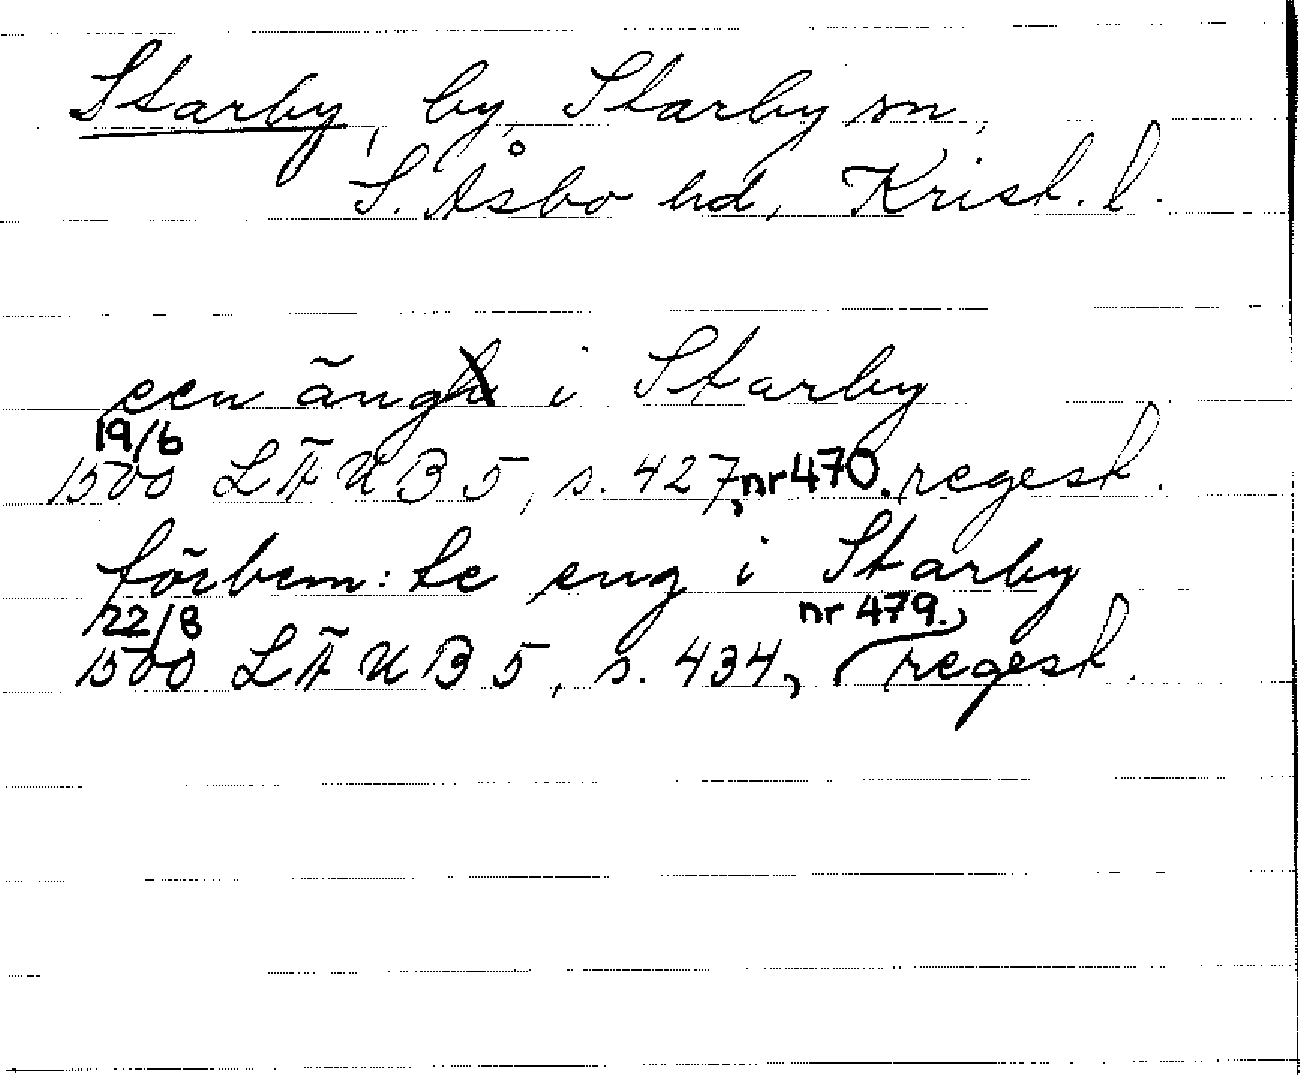 Starby, by, Starby sn,
S. Åsbo hd, Krist. l.
een äng i Starby
19/6
1500 LÄUB 5, s. 427, nr 470. regest.
förbem:te eng i Starby
22/8 nr 479.
1500 LÄUB 5, s. 434, regest.